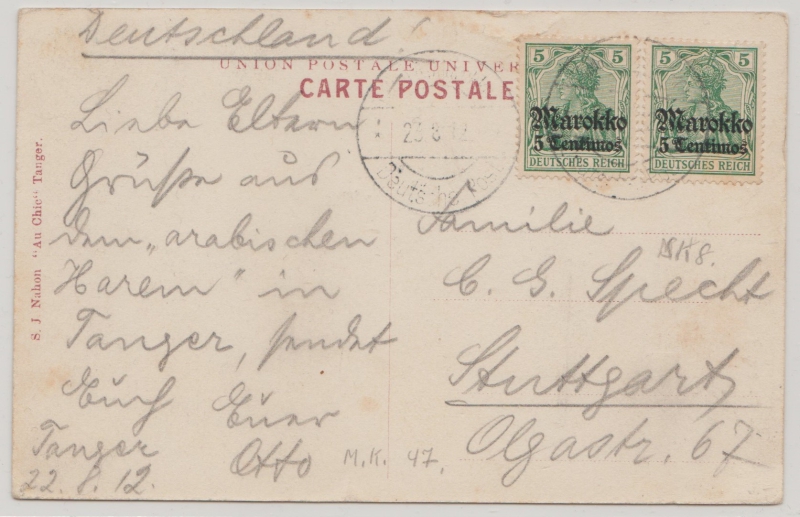 Deutschland!
UNION POSTALE UNIVER
CARTE POSTALE
5 5
Marokko
5 Centimos
DEUTSCHES REICH
5 5
Marokko
5 Centimos
DEUTSCHES REICH
23 8 12
Deutsche Post
S. J Nahon "Au Chic" Tanger.
Liebe Eltern
Grüße aus
dem „arabischen
Harem" in
Tanger, sendet
Euch Euer
Otto
Tanger
22.8.12.
Familie
C. G. Specht
Stuttgart
Olgastr. 67
M.K. 47.